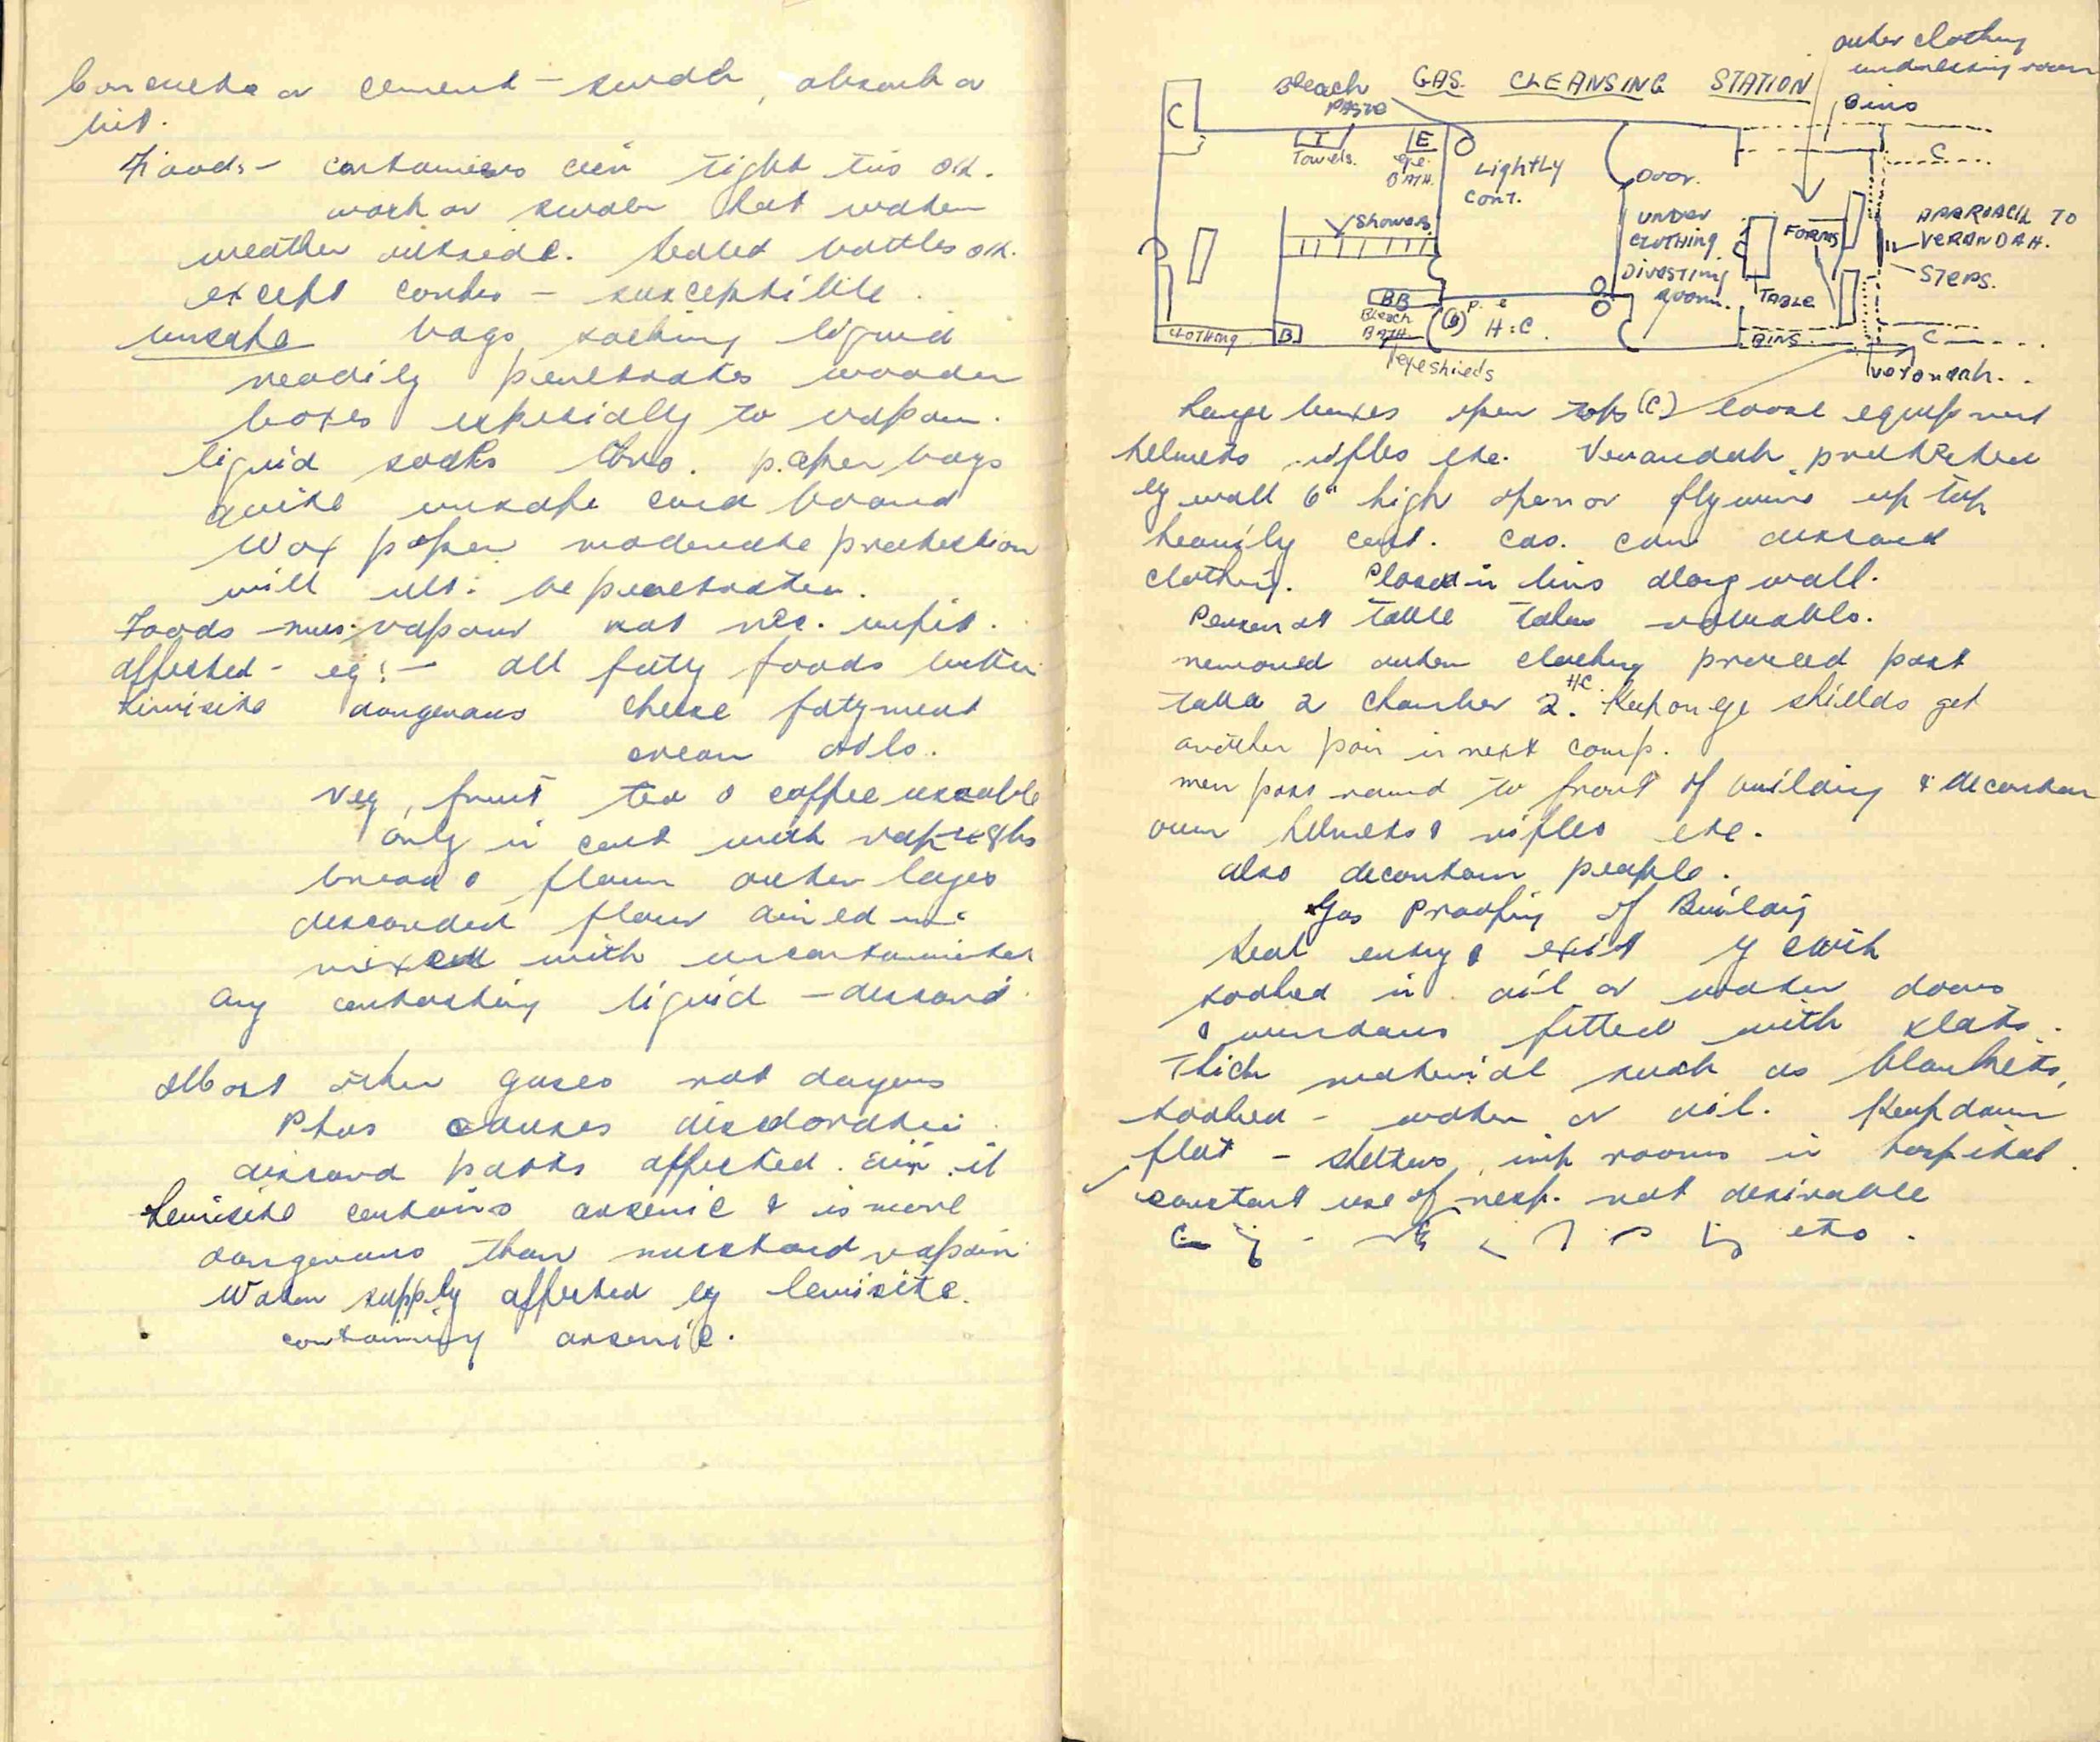 Concrete or cement – swab, absorb a
bit.
Foods – containers air tight tins O.K.
wash or swab hot water
weather outside. Sealed bottles O.K.
except corks – susceptible.
unsafe bags, sacking liquid
readily penetrates wooden
boxes especially to vapour.
liquid soaks thro. paper bags
quite unsafe card board
Wax paper moderate protection
will ult. be penetrated.
Foods mus. vapour not nec. unfit.
affected – eg :– all fatty foods butter
Lewisite dangerous cheese fatty meat
cream oils.
Veg, fruit tea & coffee useable
only in cont with vap
bread & flour outer layers
discarded flour aired
mixed with uncontaminated
any contacting liquid – discard.
Most other gases not dangerous
Phos causes discoloration
discard parts affected. air it
Lewisite contains arsenic & is more
dangerous than mustard vapour
Water supply affected by lewisite.
containing arsenic.
outer clothing
undressing room
GAS CLEANSING STATION
Bleach
PASTE
Bins
C
T
Towels.
E
eye
BATH.
Lightly
CONT.
DOOR.
C
Showers
UNDER
CLOTHING
DIVESTING
ROOM.
FORMS
TABLE
APPROACH TO
VERANDAH.
STEPS.
BB
Bleach
BATH
H.C.
CLOTHING
B
eyeshields
BINS
C
verandah.
Large boxes open tops (C) loose equipment
helmets, rifles etc. Verandah protected
by wall 6" high open or flywire up top
heavily cont. cas. can discard
clothing. Placed in bins along wall.
Person at table takes valuables.
removed outer clothing proceed past
table 2 chamber 2. H/C. Keep on eye shields get
another pair in next comp.
men pass round to front of building & decontam
own helmets & rifles etc.
also decontam people.
Gas Proofing of Building
Seal entry & exit
soaked in oil or water doors
& windows fitted with slats.
Thick material such as blankets,
soaked – water or oil. Keep down
flat – shelters, imp rooms in hospital.
constant use of resp. not desirable
etc.